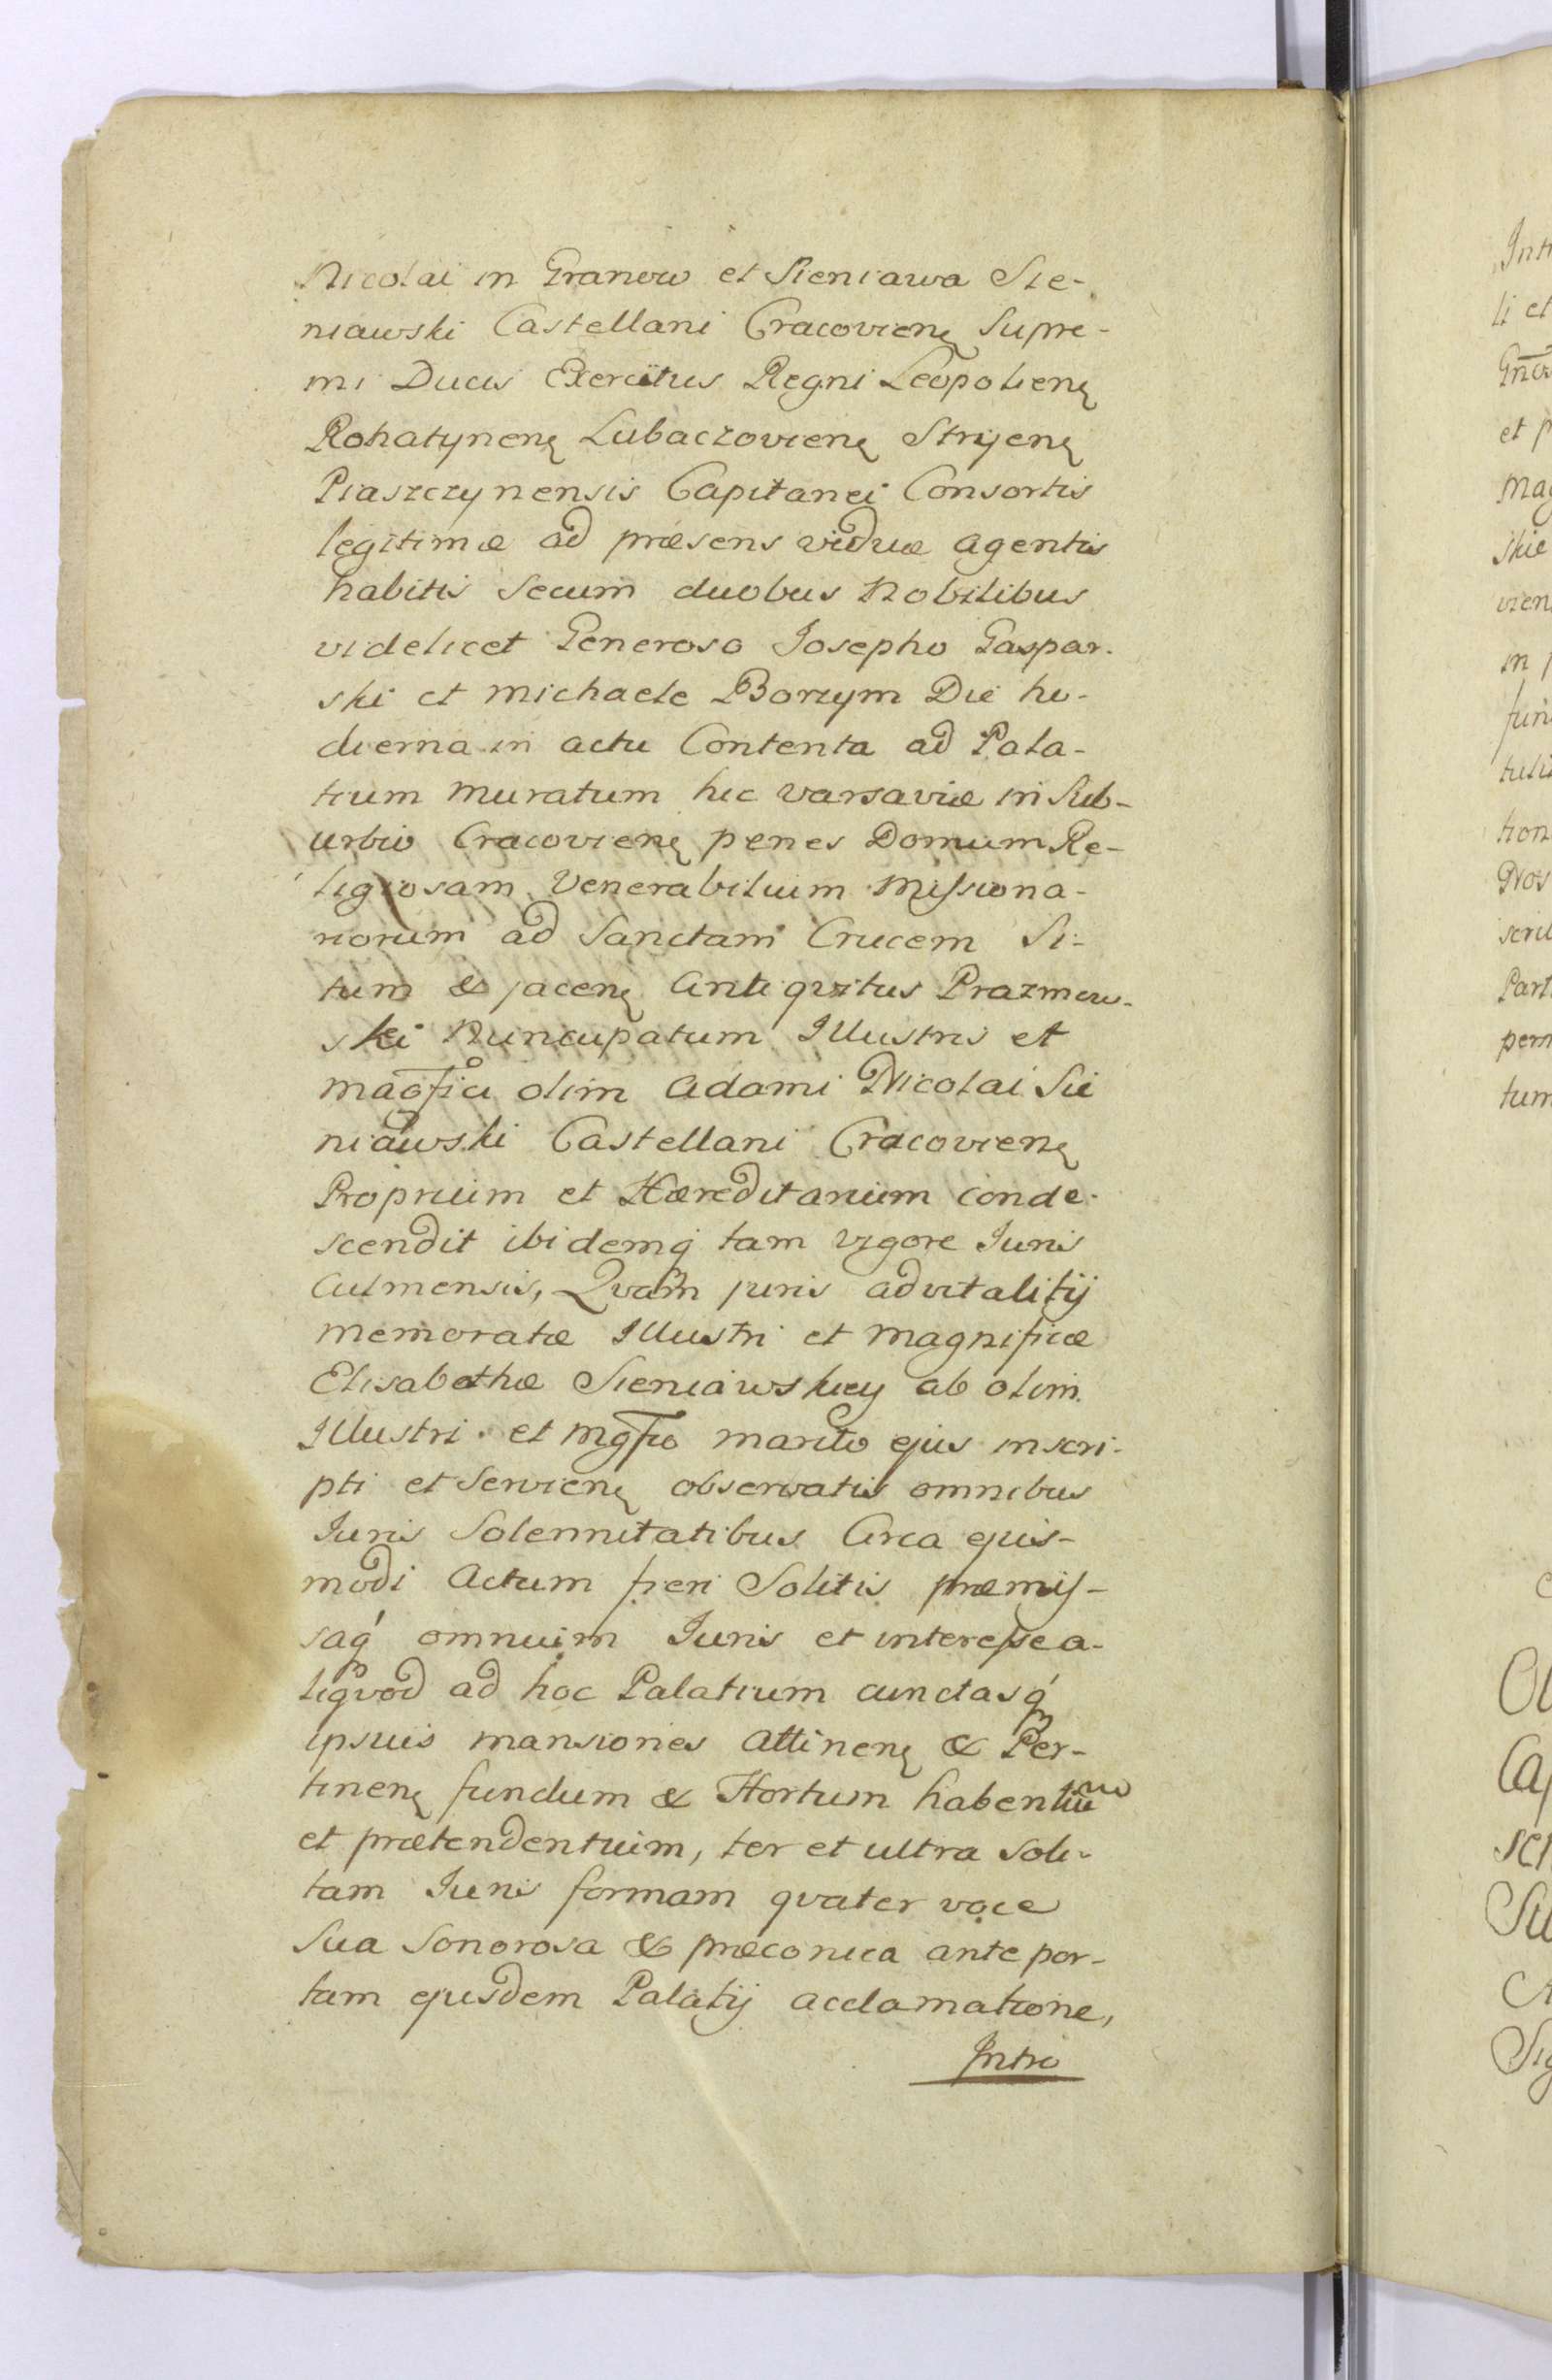 Nicolai in Granow et Sieniawa Sie-
niawski Castellani Cracovienȩ Supre-
mi Ducis Exercitus Regni Leopolienȩ
Rohatynenȩ Lubaczovienȩ Stryenȩ
Piaszczynensis Capitanei Consortis
legitimæ ad præsens viduæ agentis
habitis secum duobus Nobilibus
videlicet Generoso Josepho Gaspar-
ski et Michaele Borzym Die ho-
dierna in actu Contenta ad Pala-
tium muratum hic Varsaviæ in Sub-
urbio Cracovienȩ penes Domum Re-
ligiosam Venerabilium Missiona-
riorum ad Sanctam Crucem Si-
tum & jacenȩ Antiquitus Prazmow-
ski Nuncupatum Illustris et
magfici olim Adami Nicolai Sie
niawski Castellani Cracovienȩ
Proprium et Hæreditarium conde-
scendit ibidemq́ tam vigore Juris
Culmensis, Qvam juris advitalitij
memoratæ Illustri et Magnificæ
Elisabethæ Sieniawskiey ab olim
Illustri et Mgfco marito ejus inscri-
pti et Servienȩ observatis omnibus
Juris Solennitatibus Circa ejus-
modi Actum fieri Solitis præmis-
saq́ omnium Juris et interesse a-
liqvod ad hoc Palatium cunctasq́
ipsius mansiones Attinenȩ & Per-
tinenȩ fundum & Hortum habentiu͂m
et prætendentium, ter et ultra soli-
tam Juris formam qvater voce
Sua Sonorosa & præconica ante por-
tam ejusdem Palatij acclamatione,
Intro
Intr
li et
Gn̄er
et p
mag
skie
vien
in p
fun
tuli
tion
Nos
scri
Part
perm
tum
Ca